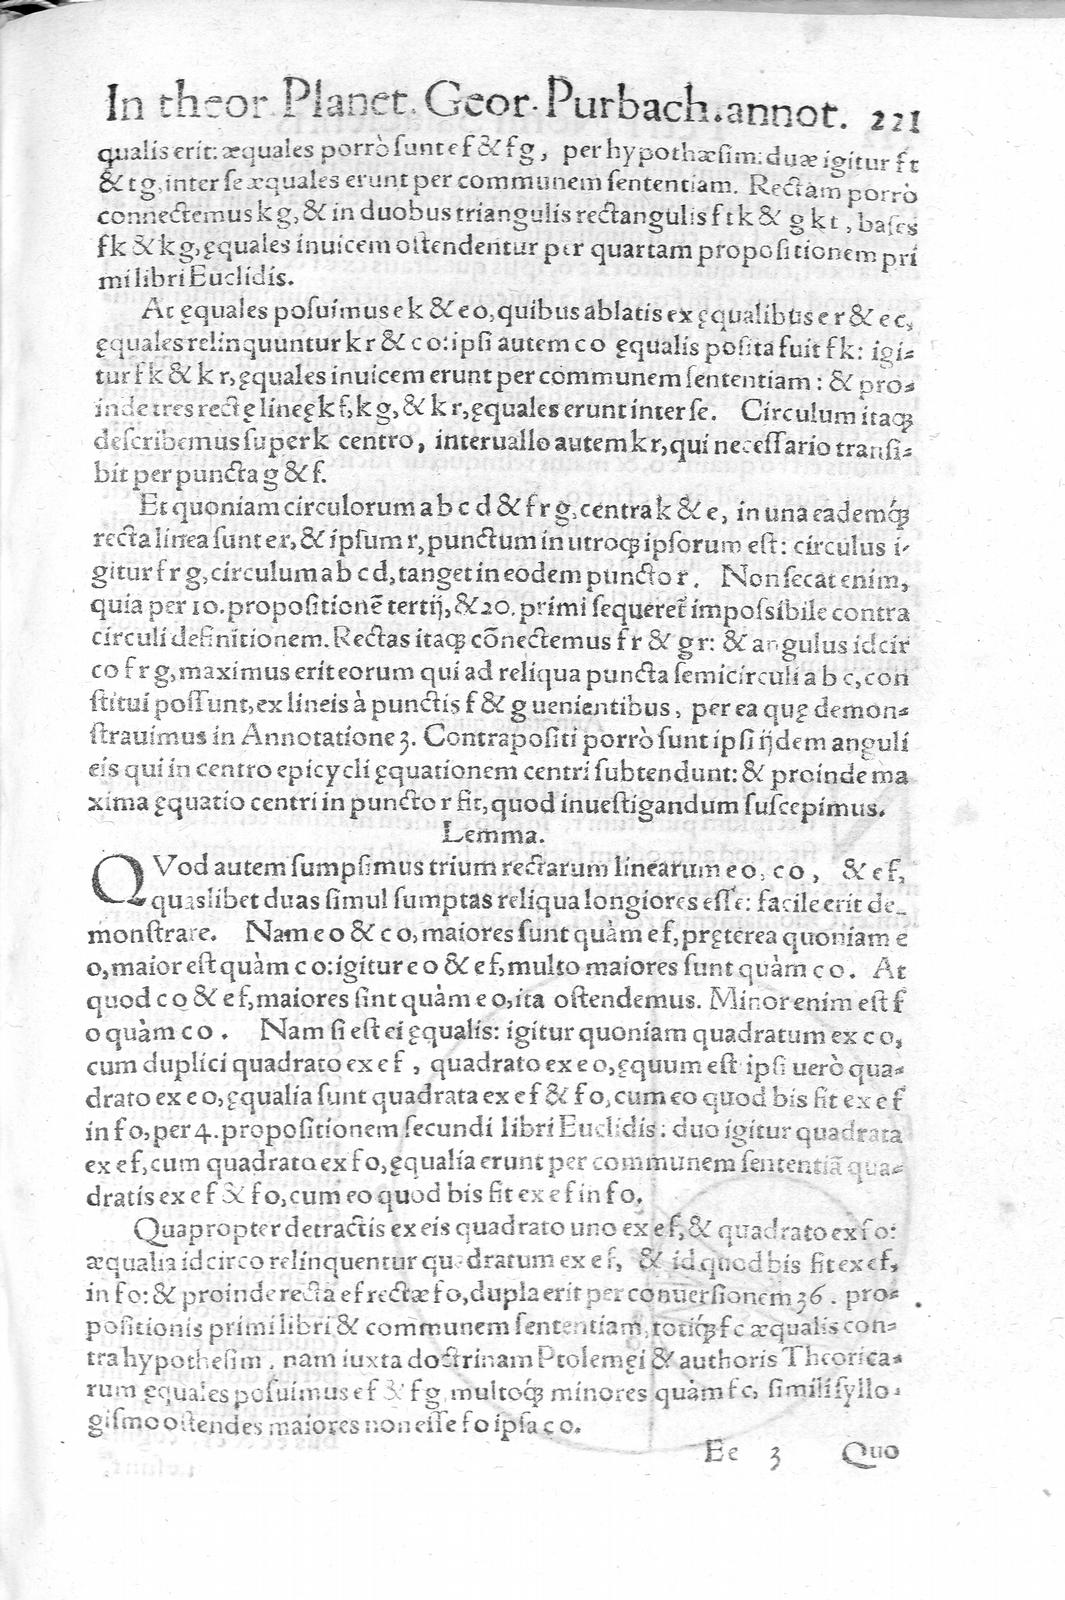 In theor. Planet. Geor. Purbach. annot. 221
qualis erit: æquales porrò sunt e f & f g, per hypothæsim: duæ igitur f t
& t g, inter se æquales erunt per communem sententiam. Rectam porrò
connectemus k g, & in duobus triangulis rectangulis f t k & g k t, bases
f k & k g, ęquales inuicem ostendentur per quartam propositionem pri
mi libri Euclidis.
At ęquales posuimus e k & e o, quibus ablatis ex ęqualibus e r & e c,
ęquales relinquuntur k r & c o: ipsi autem c o ęqualis posita fuit f k: igi-
tur f k & k r, ęquales inuicem erunt per communem sententiam: & pro-
inde tres rectę lineę k f, k g, & k r, ęquales erunt inter se. Circulum itaqꝫ
describemus super k centro, interuallo autem k r, qui necessario transi-
bit per puncta g & f.
Et quoniam circulorum a b c d & f r g, centra k & e, in una eademqꝫ
recta linea sunt e r, & ipsum r, punctum in utroqꝫ ipsorum est: circulus i-
gitur f r g, circulum a b c d, tanget in eodem puncto r. Non secat enim,
quia per 10. propositionē tertij, & 20. primi sequeret᷑ impossibile contra
circuli definitionem. Rectas itaqꝫ cōnectemus f r & g r: & angulus idcir
co f r g, maximus erit eorum qui ad reliqua puncta semicirculi a b c, con
stitui possunt, ex lineis à punctis f & g uenientibus, per ea quę demon-
strauimus in Annotatione 3. Contrapositi porrò sunt ipsi ijdem anguli
eis qui in centro epicycli ęquationem centri subtendunt: & proinde ma
xima ęquatio centri in puncto r fit, quod inuestigandum suscepimus.
Lemma.
QVod autem sumpsimus trium rectarum linearum e o, c o, & e f,
quaslibet duas simul sumptas reliqua longiores esse: facile erit de-
monstrare. Nam e o & c o, maiores sunt quàm e f, pręterea quoniam e
o, maior est quàm c o: igitur e o & e f, multo maiores sunt quàm c o. At
quod c o & e f, maiores sint quàm e o, ita ostendemus. Minor enim est f
o quàm c o. Nam si est ei ęqualis: igitur quoniam quadratum ex c o,
cum duplici quadrato ex e f, quadrato ex e o, ęquum est ipsi uerò qua-
drato ex e o, ęqualia sunt quadrata ex e f & f o, cum eo quod bis fit ex e f
in f o, per 4. propositionem secundi libri Euclidis: duo igitur quadrata
ex e f, cum quadrato ex f o, ęqualia erunt per communem sententiā qua-
dratis ex e f & f o, cum eo quod bis fit ex e f in f o.
Quapropter detractis ex eis quadrato uno ex e f, & quadrato ex f o:
æqualia idcirco relinquentur quadratum ex e f, & id quod bis fit ex e f,
in f o: & proinde recta e f rectæ f o, dupla erit per conuersionem 36. pro-
positionis primi libri & communem sententiam, totiqꝫ f c æqualis con-
tra hypothesim, nam iuxta doctrinam Ptolemęi & authoris Theorica-
rum ęquales posuimus e f & f g, multoqꝫ minores quàm f c, simili syllo-
gismo ostendes maiores non esse f o ipsa c o.
Ee 3 Quo